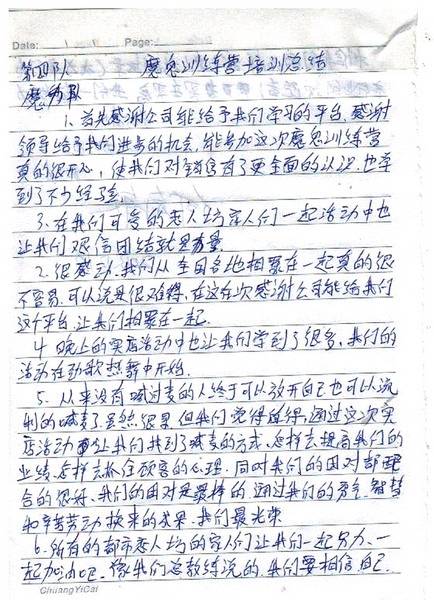 Date: Page:
第四队 魔鬼训练营培训总结
魔多队
1. 首先感谢公司能给予我们学习的平台,感谢
领导给予我们进步的机会,能参加这次魔鬼训练营
真的很开心,使我们对销售有了更全面的认识,也学
到了不少经验.
3. 在我们可爱的恋人坊家人们一起活动中也
让我们艰信团结就是力量
2. 很感动,我们从全国各地相聚在一起真的很
不容易,可以说是很难得,在这在次感谢公司能给我们
这个平台,让我们相聚在一起.
4 晚上的实店活动中也让我们学到了很多,我们的
活动在劲歌热舞中开始.
5. 从来没有喊过麦的人终于可以放开自己也可以流
利的喊麦了虽然很累,但我们觉得值得,通过这次实
店活动 让我们找到了喊麦的方式,怎样去提高我们的
业绩,怎样去抓住顾客的心理,同时我们的团对都配
合的很好,我们的团对是最棒的,通过我们的勇气,智慧
和辛劳劳动换来的成果,我们最光荣
6. 所有的都市恋人坊的家人们让我们一起努力,一
起加油吧,像我们总教练说的,我们要相信自己.
ChuangYiCai